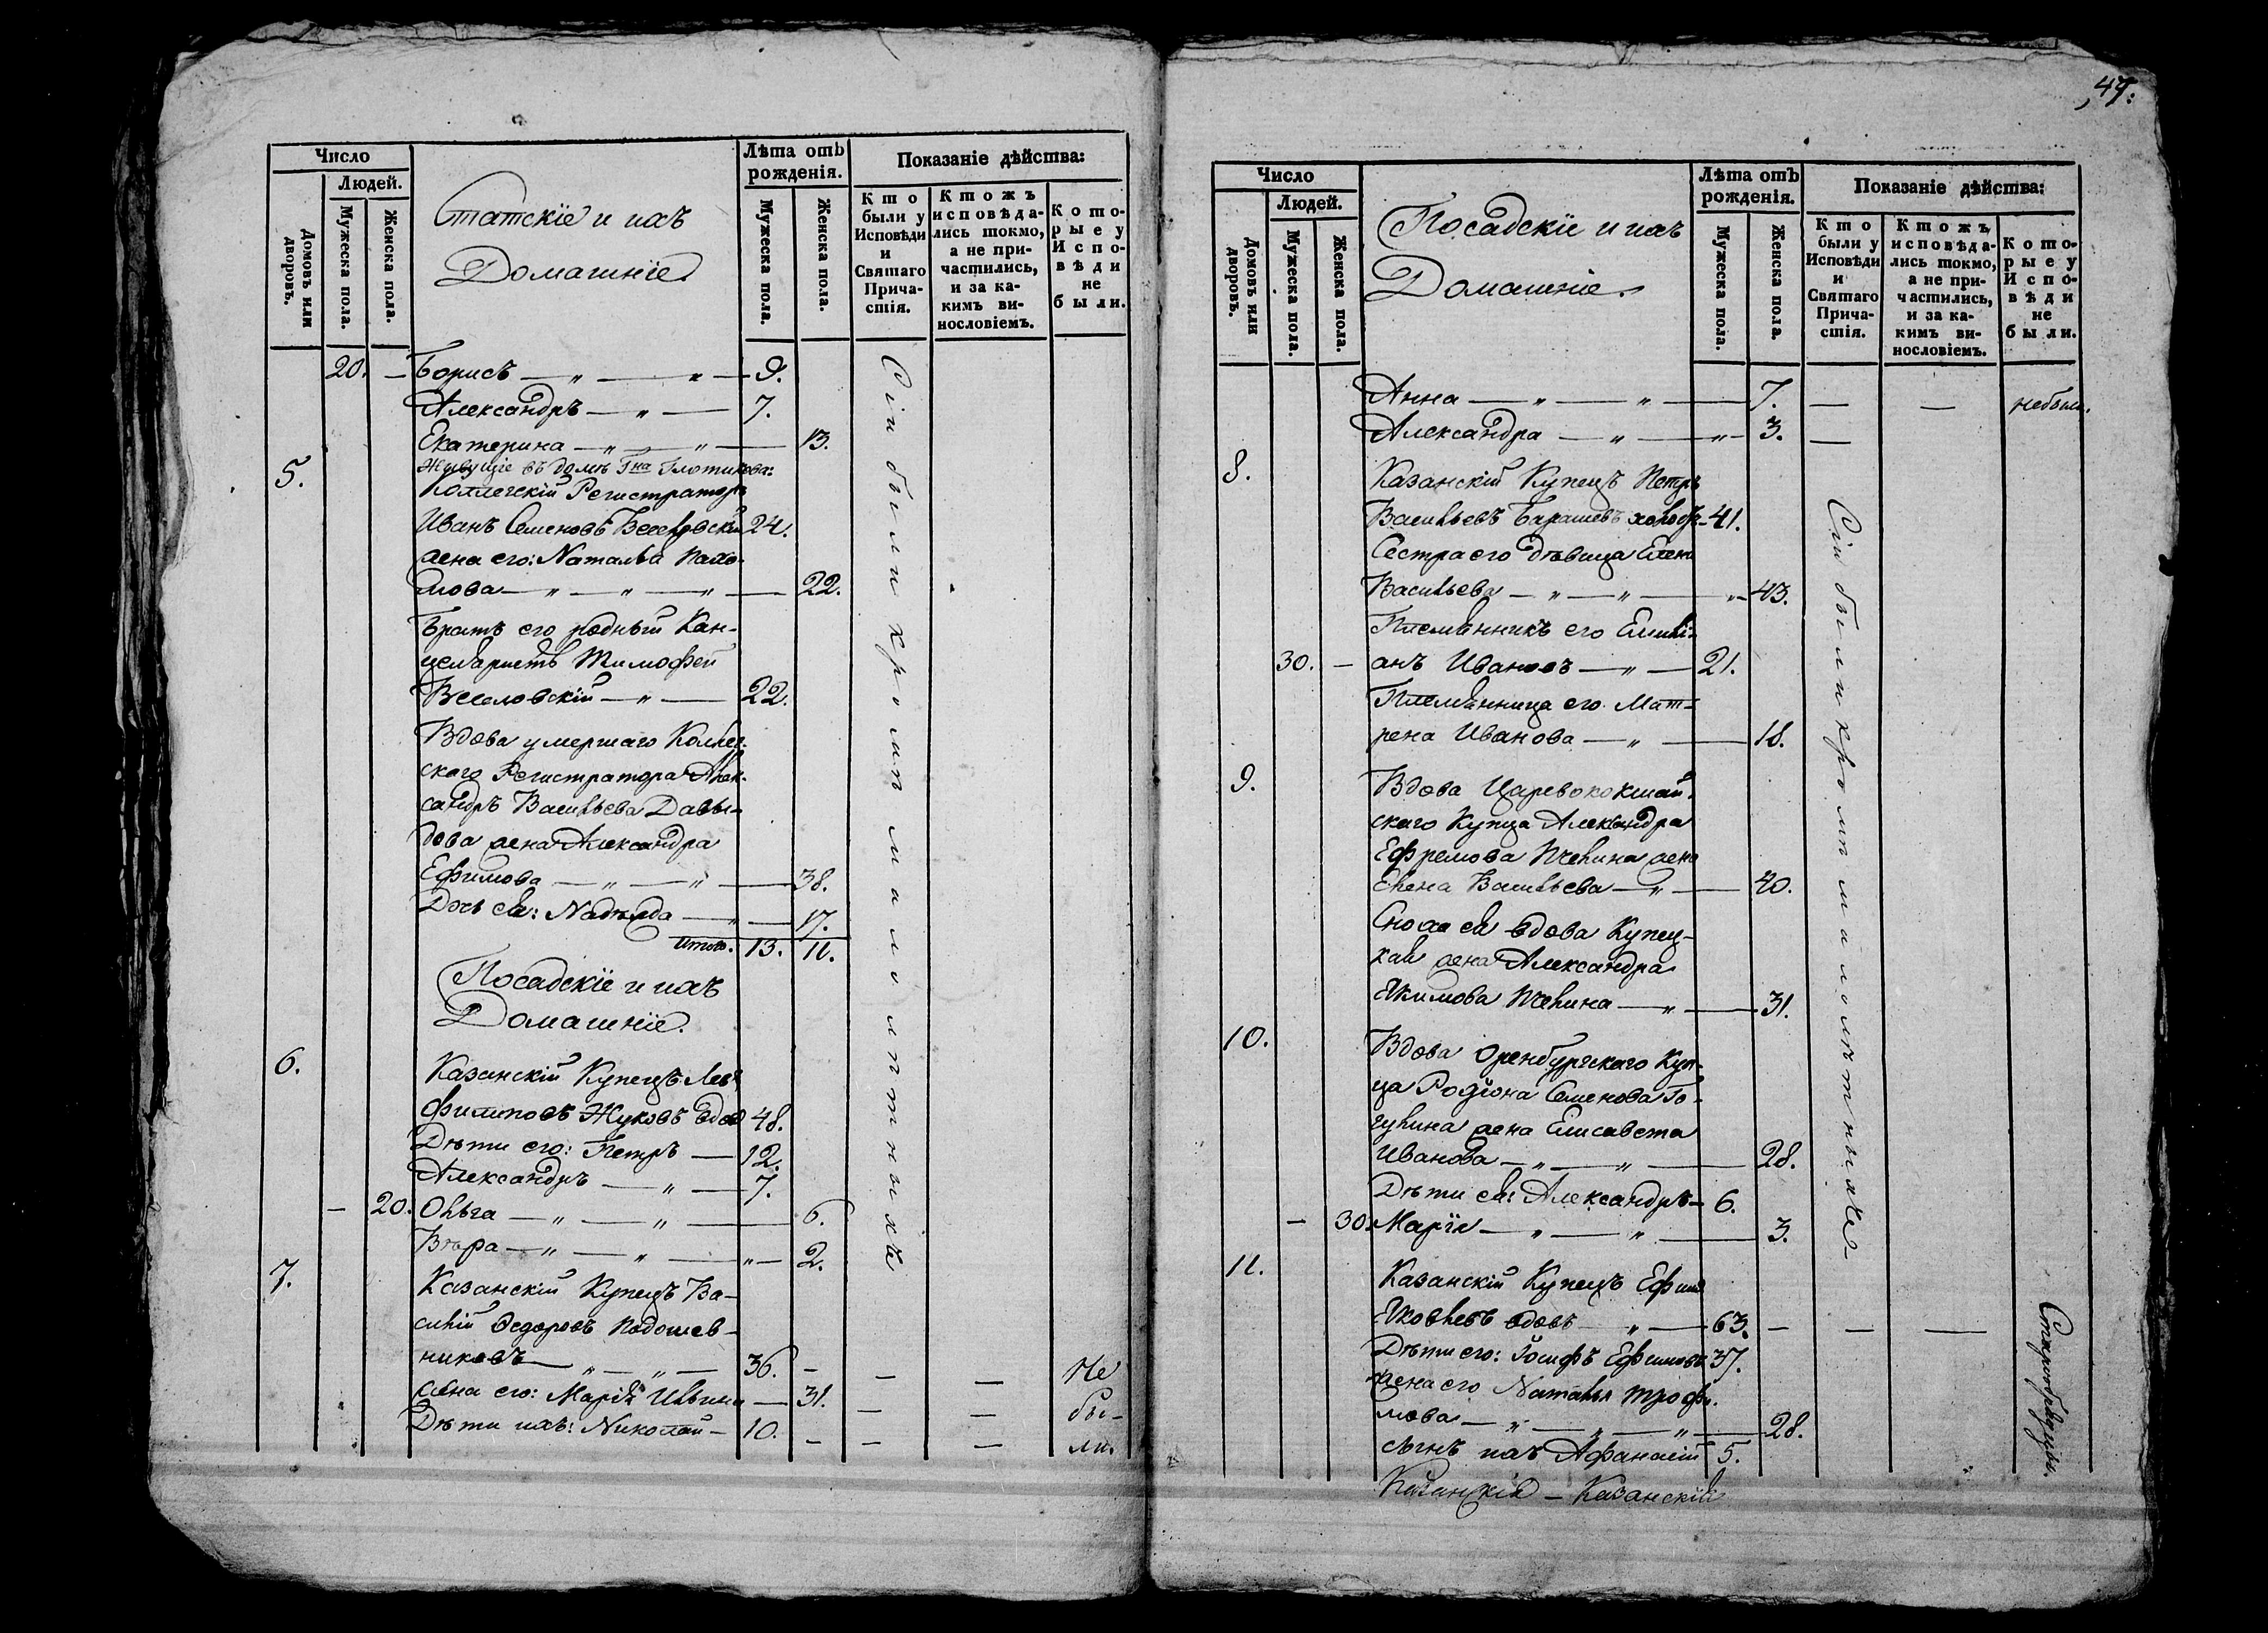 47.
Число
Людей.
Домовъ или дворовъ.
Мужеска пола.
Женска пола.
Статскіе и ихъ
Домашніе
Лѣта отъ
рожденія.
Мужеска пола.
Женска пола.
Показаніе дѣйства:
Кто были у Исповѣди и Святаго Прича-стія.
Ктожъ исповѣда-лись токмо, а не при-частились, и за ка-кимъ ви-нословіемъ.
Кото-рые у Испо-вѣди не были.
20. — Борисъ — „ — „ — 9.
Александръ — „ — 7.
Екатерина — „ — „ — 13.
5. Живущіе въ домѣ Гна
Коллегскій Регистраторъ
Иванъ Семеновъ 24.
жена его: Наталья Пахо-
мова — „ — „ — „ — 22.
Братъ его родный Кан-
целяристъ Тимофей
Веселовскій — „ — 22.
Вдова умершаго Коллег-
скаго Регистратора Алек-
сандръ Васильева Давы-
дова жена Александра
Ефимова — „ — „ — 38.
Дочь ея: Надежда — „ — 17.
Итого. 13. 11.
Посадскіе и ихъ
Домашніе.
6. Казанскій Купецъ Левъ
Филиповъ Жуковъ вдовъ 48.
Дѣти его: Петръ — 12.
Александръ — „ — 7.
— 20. Ольга — „ — „ — 6.
Вѣра — „ — „ — „ — 2.
7. Казанскій Купецъ Ва-
силій Ѳедоровъ Подошев-
никовъ — „ — „ — 36. — — — Не
жена его: Марія Ильина — 31. — — бы-
Дѣти ихъ: Николай — 10. — — — ли.
Сіи были кромѣ малолѣтныхъ
Число
Людей.
Домовъ или дворовъ.
Мужеска пола.
Женска пола.
Посадскіе и ихъ
Домашніе.
Лѣта отъ
рожденія.
Мужеска пола.
Женска пола.
Показаніе дѣйства:
Кто были у Исповѣди и Святаго Прича-стія.
Ктожъ исповѣда-лись токмо, а не при-частились, и за ка-кимъ ви-нословіемъ.
Кото-рые у Испо-вѣди не были.
Анна — „ — „ — 7. — — небыли.
Александра — „ — „ — 3. —
8. Казанскій Купецъ Петръ
Васильевъ Барашевъ холостъ — 41.
Сестра его дѣвица Елена
Васильева — „ — „ — „ — 43.
Племянникъ его Емилі-
30. — анъ Ивановъ — „ — 21.
Племянница его Мат-
рена Иванова — „ — 18.
9. Вдова Царевококшай-
скаго Купца Александра
Ефремова Пчелина жена
Елена Васильева — „ — 40.
Сноха ея вдова Купец-
кая жена Александра
Якимова Пчелина — „ — 31.
10. Вдова Оренбургскаго Куп-
ца Родіона Семенова Го-
гулина жена Елисавета
Иванова — „ — „ — 28.
Дѣти ея: Александръ — 6.
— 30. Марія — „ — „ — 3.
11. Казанскій Купецъ Ефимъ
Яковлевъ вдовъ — „ — 63. — — —
Дѣти его: Іосифъ Ефимовъ 37.
жена его Наталья Трофи-
мова — „ — „ — „ — 28.
сынъ ихъ Афанасій 5.
Казанскій — Казанскій
Сіи были кромѣ малолѣтныхъ
Старообрядцы.